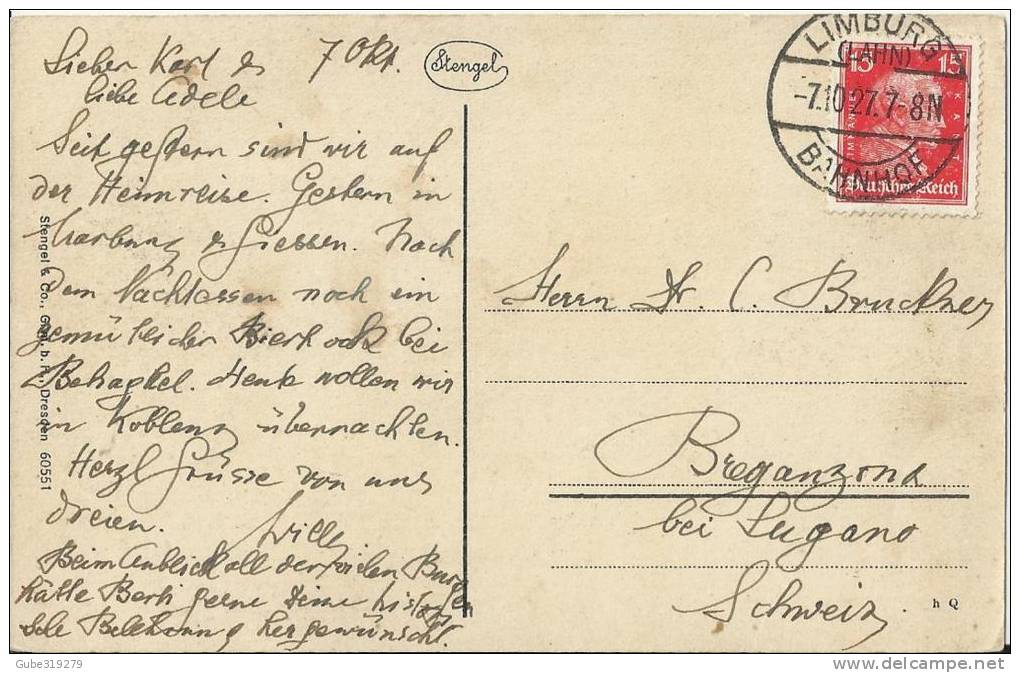 Lieber Karl &
liebe Adele
7 Okt.
Stengel
LIMBURG
(LAHN)
-7.10.27.7-8N
BAHNHOF
15 15
IMMANUEL KANT
Deutsches Reich
Seit gestern sind wir auf
der Heimreise. Gestern in
Marburg & Giessen. Nach
dem Nachtessen noch ein
gemütlicher Bierhock bei
Behaghel. Heute wollen wir
in Koblenz übernachten.
Herzl Grüsse von uns
dreien.
Willy
Beim Anblick all der vielen Burgen
hätte Berti gerne Deine histori
sche Belehrung hergewünscht.
Stengel & Co., G.m.b.H., Dresden 60551
Herrn Dr. C. Bruckner
Breganzona
bei Lugano
Schweiz
h Q
Gube319279
delcampe.net